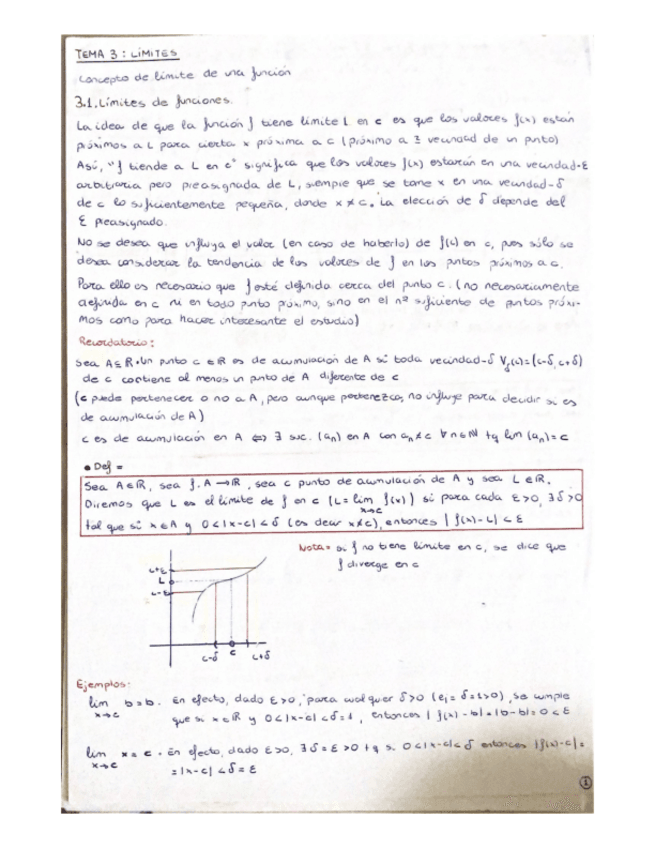 TEMA 3: LÍMITES
Concepto de límite de una función
3.1. Límites de funciones.
La idea de que la función f tiene límite L en c es que los valores f(x) están
próximos a L para cierta x próxima a c (próximo a ≡ vecindad de un punto)
Así, "f tiende a L en c" significa que los valores f(x) estarán en una vecindad-ε
arbitraria pero preasignada de L, siempre que se tome x en una vecindad-δ
de c lo suficientemente pequeña, donde x≠c. La elección de δ depende del
ε preasignado.
No se desea que influya el valor (en caso de haberlo) de f(c) en c, pues sólo se
desea considerar la tendencia de los valores de f en los puntos próximos a c.
Para ello es necesario que f esté definida cerca del punto c. (no necesariamente
definida en c ni en todo punto próximo, sino en el nº suficiente de puntos próxi-
mos como para hacer interesante el estudio)
Recordatorio:
Sea A⊆ℝ. Un punto c∈ℝ es de acumulación de A si toda vecindad-δ V_δ(c)=(c-δ, c+δ)
de c contiene al menos un punto de A diferente de c
(c puede pertenecer o no a A, pero aunque pertenezca, no influye para decidir si es
de acumulación de A)
c es de acumulación en A ⇔ ∃ suc. (an) en A con an≠c ∀n∈ℕ tq lim (an)=c
• Def =
Sea A⊆ℝ, sea f: A→ℝ, sea c punto de acumulación de A y sea L∈ℝ.
Diremos que L es el límite de f en c (L= lim f(x)) si para cada ε>0, ∃δ>0
x→c
tal que si x∈A y 0<|x-c|<δ (es decir x≠c), entonces |f(x)-L|<ε
Nota= si f no tiene límite en c, se dice que
f diverge en c
L+ε
L
L-ε
c-δ c c+δ
Ejemplos:
lim b=b. En efecto, dado ε>0, para cualquier δ>0 (ej= δ=1>0), se cumple
x→c
que si x∈ℝ y 0<|x-c|<δ=1, entonces |f(x)-b|=|b-b|=0<ε
lim x=c. En efecto, dado ε>0, ∃δ=ε>0 tq si 0<|x-c|<δ entonces |f(x)-c|=
x→c
=|x-c|<δ=ε
1